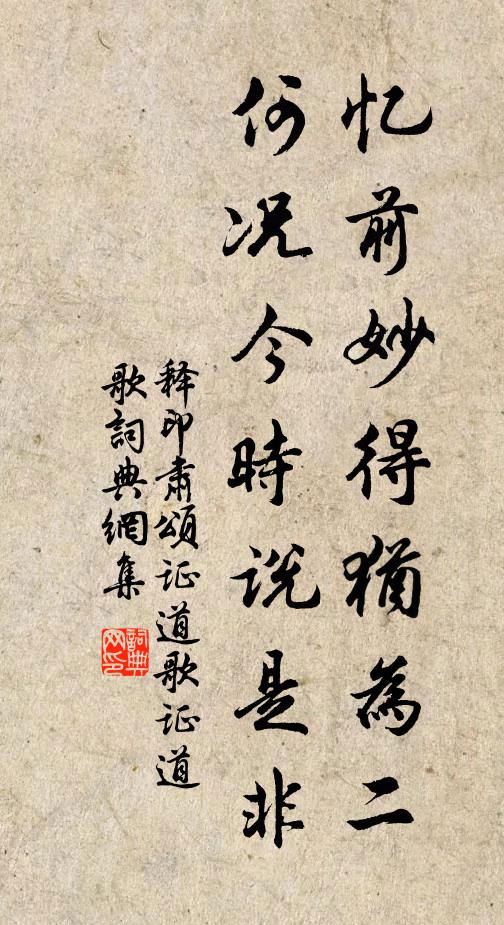 忆前妙得犹為二
何况今時说是非
释印肃頌证道歌证道
歌詞典網集
詞典网印